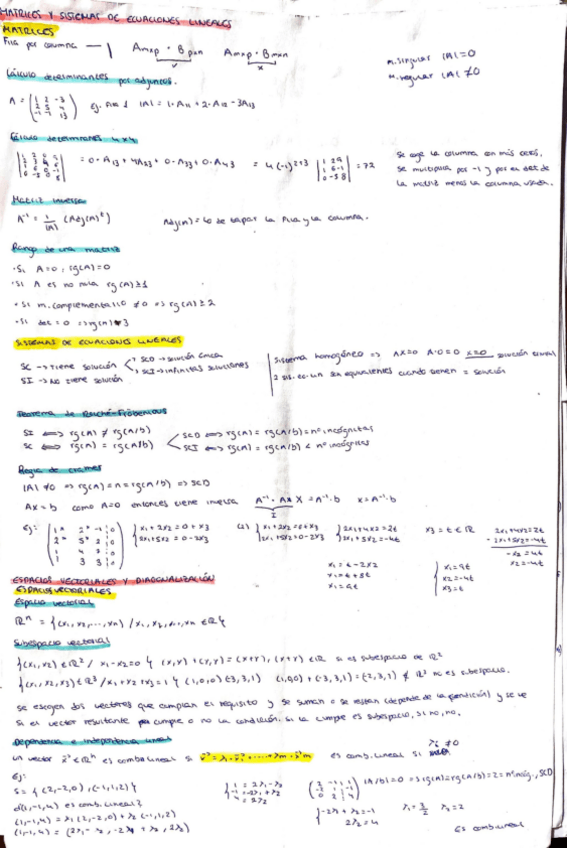 MATRICES Y SISTEMAS DE ECUACIONES LINEALES
MATRICES
Fila por columna → A mxp · B pxn   A mxp · B mxn
m. singular |A|=0
m. regular |A|≠0
Cálculo determinantes por adjuntos.
Ej. Fila 1 |A| = 1·A11 + 2·A12 - 3A13
Cálculo determinantes 4x4
= 0·A13 + 4A23 + 0·A33 + 0·A43 = 4(-1)^2+3 = 72
Se coge la columna con más ceros.
Se multiplica por -1 y por el det de
la matriz menos la columna usada.
Matriz inversa
A^-1 = 1/|A| (Adj(A)^t)   Adj(A) = lo de tapar la fila y la columna.
Rango de una matriz
· Si A=0, rg(A)=0
· Si A es no nula rg(A)≥1
· Si m. complementario ≠0 => rg(A)≥2
· Si det = 0 => rg(A)≠3
SISTEMAS DE ECUACIONES LINEALES
SC → tiene solución   SCD → solución única
SCI → infinitas soluciones
SI → No tiene solución
Sistema homogéneo => AX=0 A·0=0 x=0 solución trivial
2 sis. ec. lin son equivalentes cuando tienen = solución
Teorema de Rouché-Fröbenious
SI <=> rg(A) ≠ rg(A/b)
SC <=> rg(A) = rg(A/b)
SCD <=> rg(A) = rg(A/b) = nº incógnitas
SCI <=> rg(A) = rg(A/b) < nº incógnitas
Regla de cramer
|A| ≠0 => rg(A) = n = rg(A/b) => SCD
AX = b como A=0 entonces tiene inversa A^-1 · AX X = A^-1·b   x = A^-1·b
I
Ej:
x1 + 2x2 = 0 + x3
2x1 + 5x2 = 0 - 2x3
x3 = t ∈ R
x1 = 9t
x2 = -4t
x3 = t
ESPACIOS VECTORIALES Y DIAGONALIZACIÓN
ESPACIOS VECTORIALES
Espacio vectorial
R^n = {(x1, x2, ..., xn) / x1, x2, ..., xn ∈ R}
Subespacio vectorial
{(x1, x2) ∈ R^2 / x1 - x2 = 0} (x,x) + (y,y) = (x+y), (x+y) ∈ R si es subespacio de R^2
{(x1, x2, x3) ∈ R^3 / x1 + x2 + x3 = 1} (1,0,0) (-3,3,1) (1,0,0) + (-3,3,1) = (-2,3,1) ∉ R^3 no es subespacio.
Se escogen dos vectores que cumplan el requisito y se suman o se restan (depende de la condición) y se ve
si el vector resultante cumple o no la condición. Si la cumple es subespacio, si no, no.
Dependencia e independencia lineal
Un vector ∈ R^n es comb lineal si   es comb. lineal si
Ej:
S = {(2,-2,0), (-1,1,2)}
d(1,-1,4) es comb. lineal?
(1,-1,4) = λ1(2,-2,0) + λ2(-1,1,2)
(1,-1,4) = (2λ1 - λ2, -2λ1 + λ2, 2λ2)
1 = 2λ1 - λ2
-1 = -2λ1 + λ2
4 = 2λ2
|A/b| = 0 => rg(A) = rg(A/b) = 2 = nº incóg, SCD
-2λ1 + λ2 = -1
2λ2 = 4
λ1 = 3/2   λ2 = 2
Es comb lineal